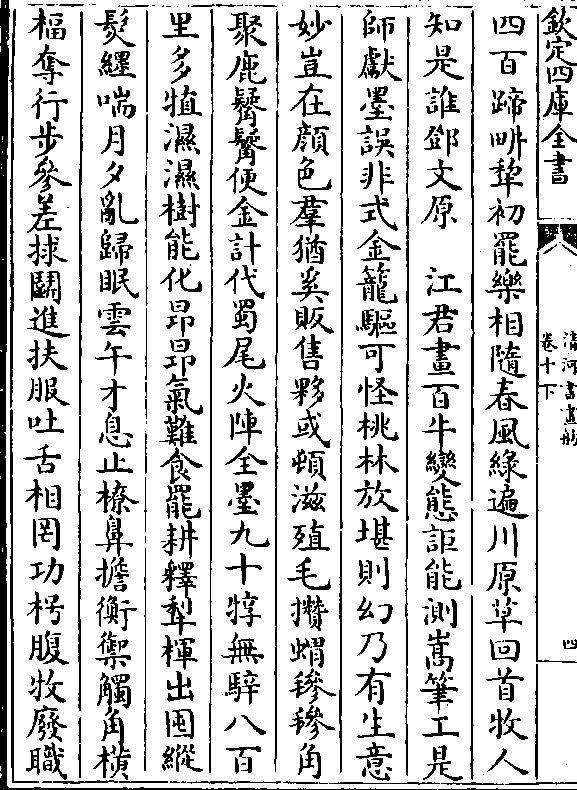 欽定四庫全書
清河書畫舫
卷十下
四
四百蹄畊犂初罷樂相隨春風綠遍川原草回首牧人
知是誰鄧文原　江君畫百牛變態詎能測嵩筆工是
師戲墨誤非式金籠驅可怪桃林放堪則幻乃有生意
妙豈在顔色羣猶奚販售夥或頓滋殖毛攢蝟㲯㲯角
聚鹿鬡鬡便金計代蜀尾火陣全墨九十犉無騂八百
里多犆濕濕樹能化昂昂氣難食罷耕釋犁楎出囤縱
㸚纒喘月夕亂歸眠雲午才息止橑鼻擔衡禦觸角橫
楅奪行步參差捄鬭進扶服吐舌相罔功枵腹牧廢職